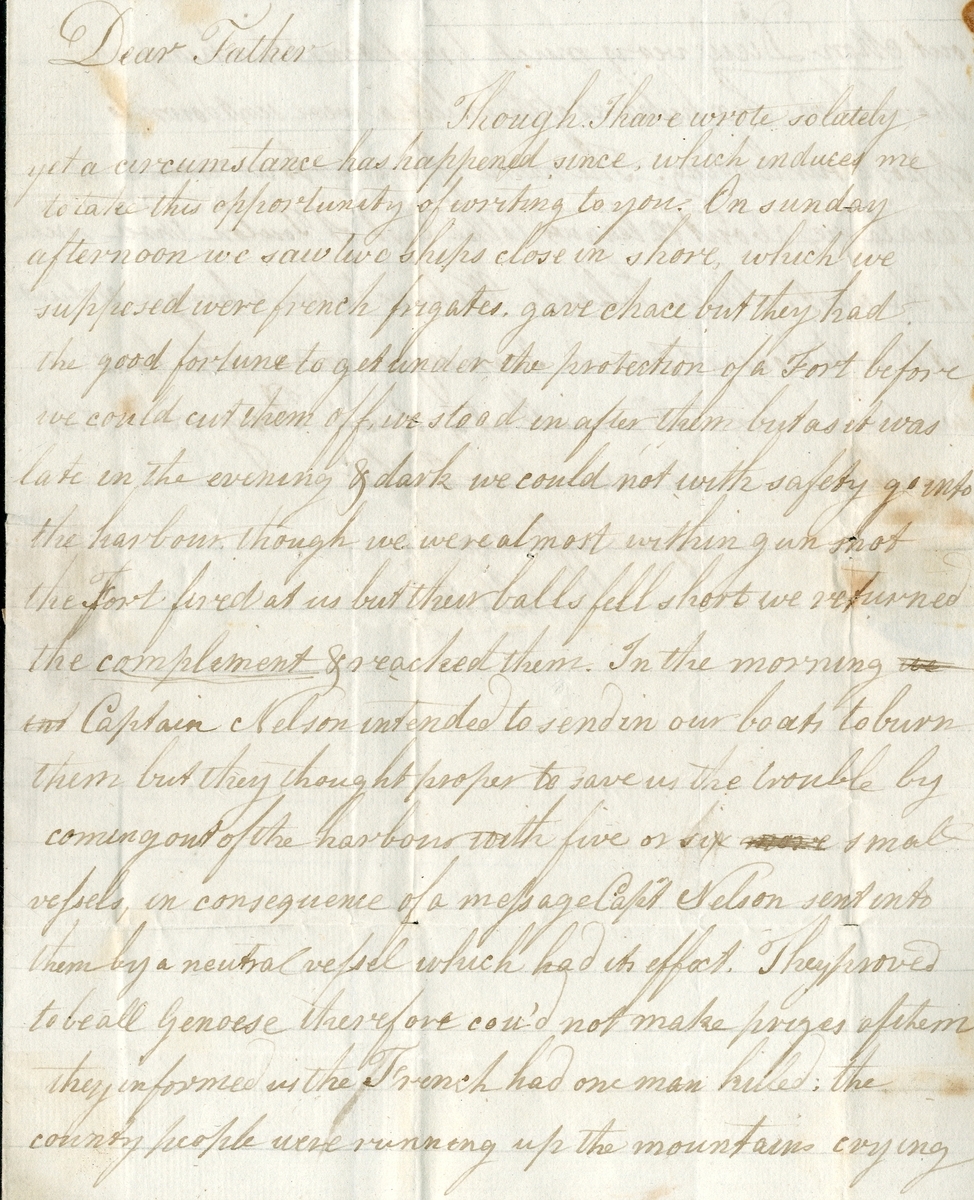 Dear Father
Though I have wrote so lately
yet a circumstance has happened since, which induces me
to take this opportunity of writing to you. On sunday
afternoon we saw two ships close in shore, which we
supposed were french frigates. gave chace but they had
the good fortune to get under the protection of a Fort before
we could cut them off, we stood in after them but as it was
late in the evening & dark we could not with safety go into
the harbour though we were almost within gun shot
the Fort fired at us but their balls fell short we returned
the compliment & reached them. In the morning we
Captain Nelson intended to send in our boats to burn
them but they thought proper to save us the trouble by
coming out of the harbour with five or six more small
vessels, in consequence of a message Capt Nelson sent into
them by a neutral vessel which had its effect. They proved
to be all Genoese therefore cou'd not make prizes of them
they informed us the French had one man killed: the
country people were running up the mountains crying